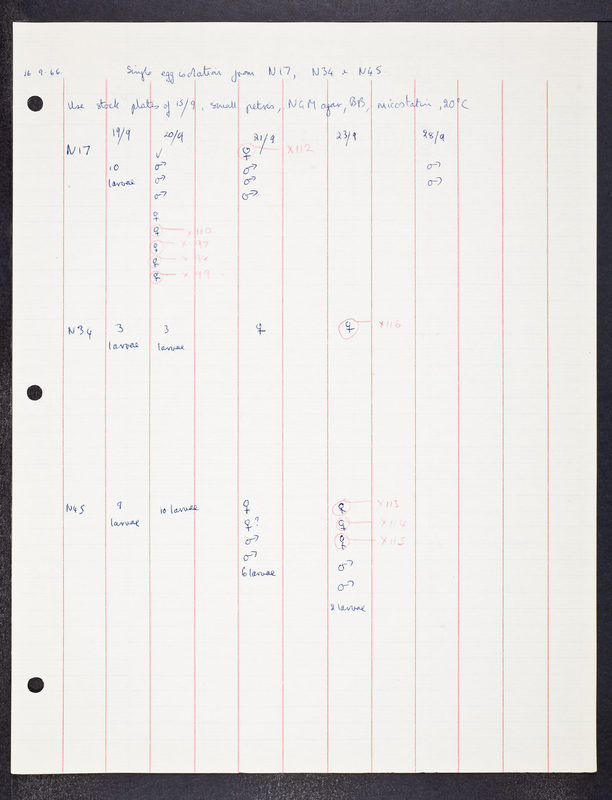 16.9.66. Single egg isolation from N17, N34 & N45.
Use stock plates of 15/9, small petres, NGM agar, BB, micostatin, 20°C
19/9 20/9 21/9 23/9 28/9
N17 ✓ ♀ x112
10 ♂ ♂ ♂
larvae ♂ ♂ ♂
♂ ♂
♀
♀ x 110
♀ x
♀ x
♀ x 99
N34 3 3 ♀ ♀ x116
larvae larvae
N45 9 10 larvae ♀ ♀ x113
larvae ♀? ♀ x114
♂ ♀ x115
♂ ♂
6 larvae ♂
2 larvae